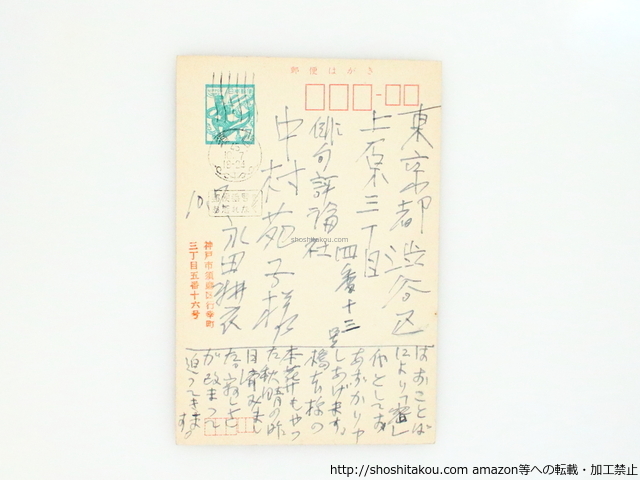 郵便はがき
東京都渋谷区
上原三丁目
四番十三号
俳句評論社
中村苑子様
永田耕衣
神戸市須磨区行幸町
三丁目五番十六号
はおことば
によって
としてお
あずかり
しあげます。
橋本様の
本葬もやっ
た秋晴の昨
日済みまし
た。寂しさ
が改まって
迫ってきます。
shoshitakou.com
http://shoshitakou.com amazon等への転載・加工禁止